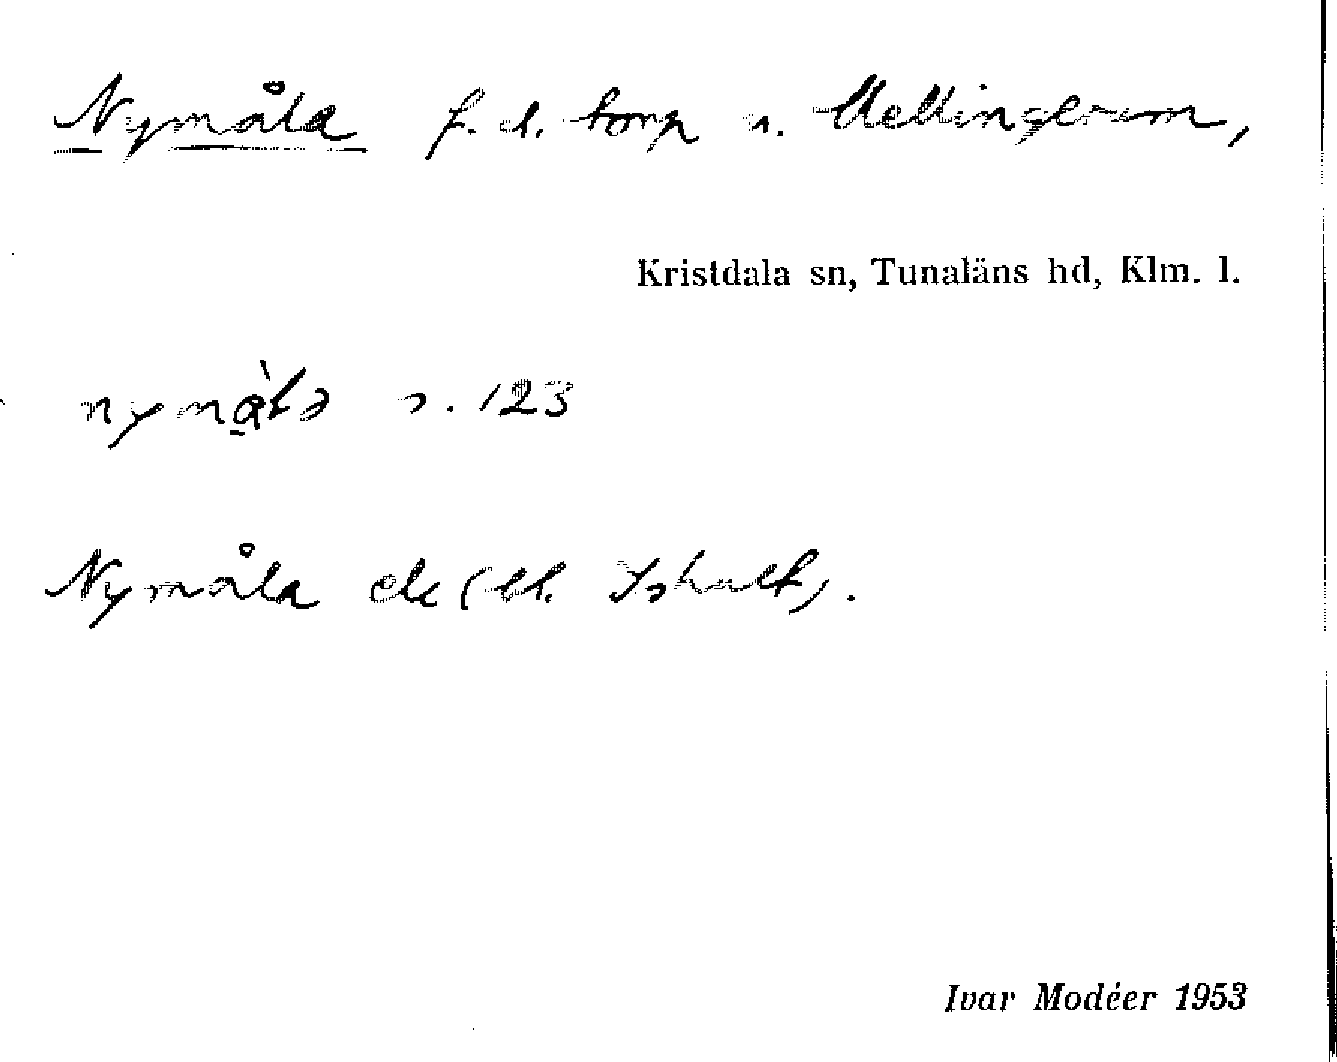 Nymåla f. d. torp u. Mellingerum,
Kristdala sn, Tunaläns hd, Klm. l.
s. 123
Nymåla ek (bl. Ishult).
Ivar Modéer 1953